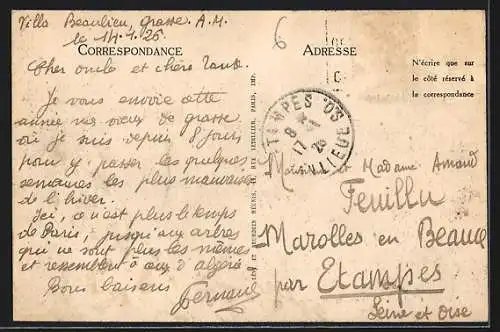 Villa Beaulieu, Grasse. A.M.
le 14.1.26
CORRESPONDANCE
ADRESSE
6
N'écrire que sur
le côté réservé à
la correspondance
Cher oncle et chère Tante
Je vous envoie cette
année mes vœux de grasse
où je suis depuis 8 jours
pour y passer les quelques
semaines les plus mauvaises
de l'hiver.
Ici, ce n'est plus le temps
de Paris, jusqu'aux arbres
qui ne sont plus les mêmes
et ressemblent à ceux d'algérie
Bons baisers
Fernand
ETAMPES
8
17 -1
26
Monsieur et Madame Amand
Feuillu
Marolles en Beauce
par Etampes
Seine et Oise